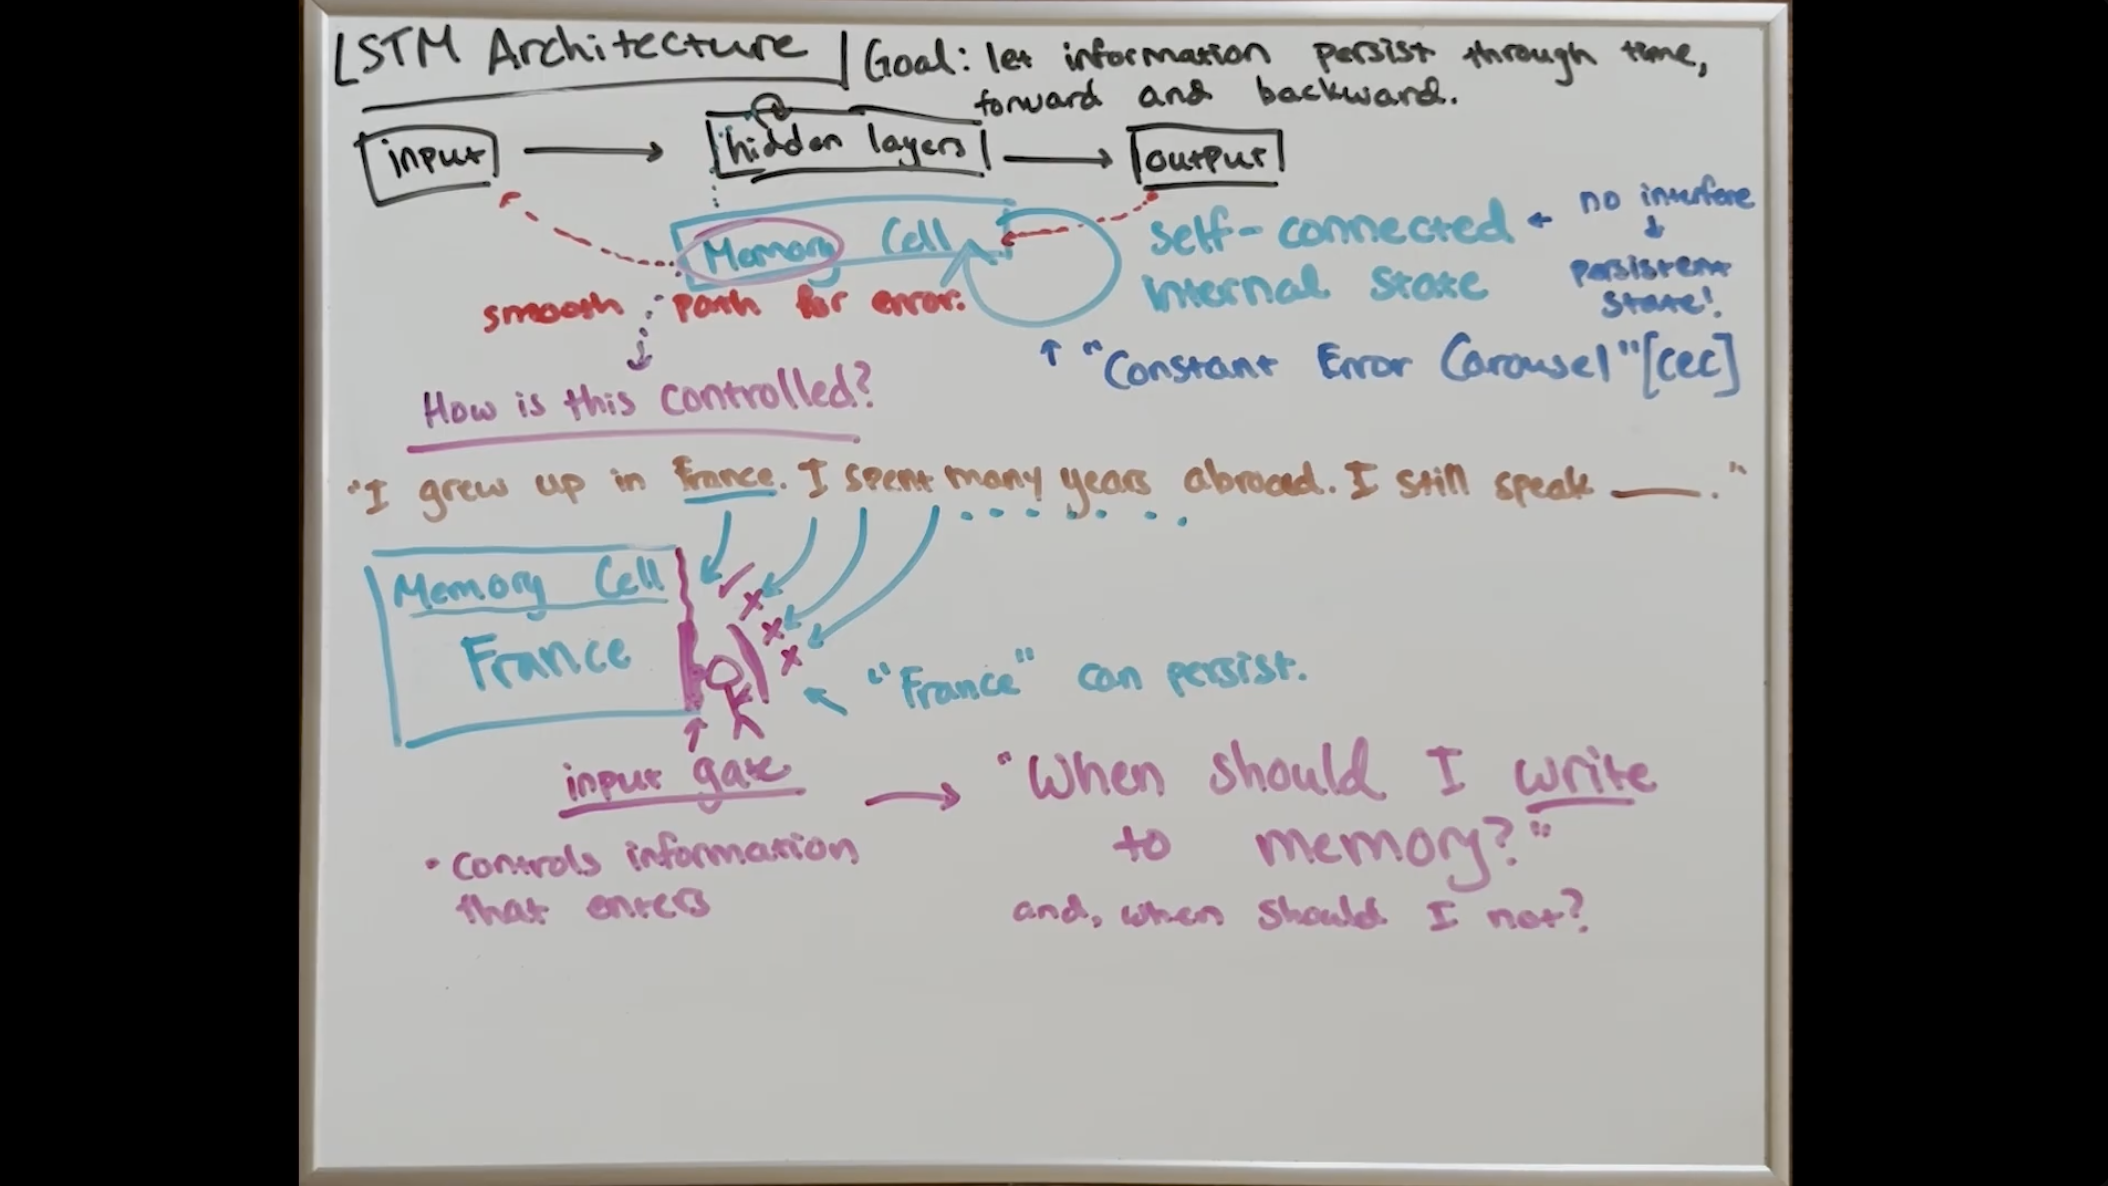 LSTM Architecture
Goal: let information persist through time,
forward and backward.
input
hidden layers
output
Memory Cell
self-connected
internal state
no interfere
persistent
state!
smooth path for error.
"Constant Error Carousel" [CEC]
How is this controlled?
"I grew up in France. I spent many years abroad. I still speak ___."
Memory Cell
France
"France" can persist.
input gate
"When should I write
to memory?"
• controls information
that enters
and, when should I not?